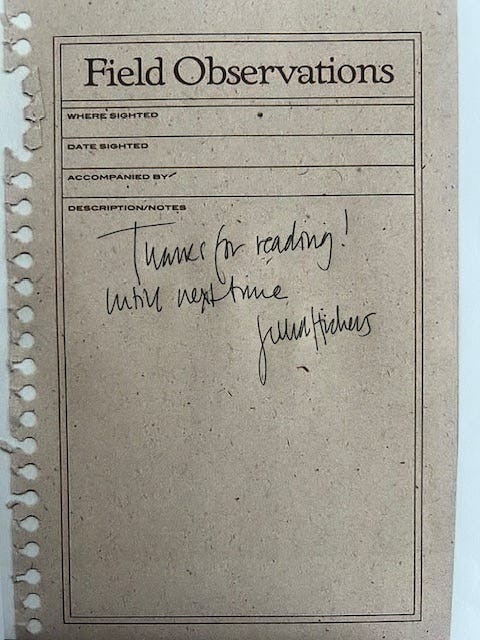 Field Observations
WHERE SIGHTED
DATE SIGHTED
ACCOMPANIED BY
DESCRIPTION/NOTES
Thanks for reading!
until next time